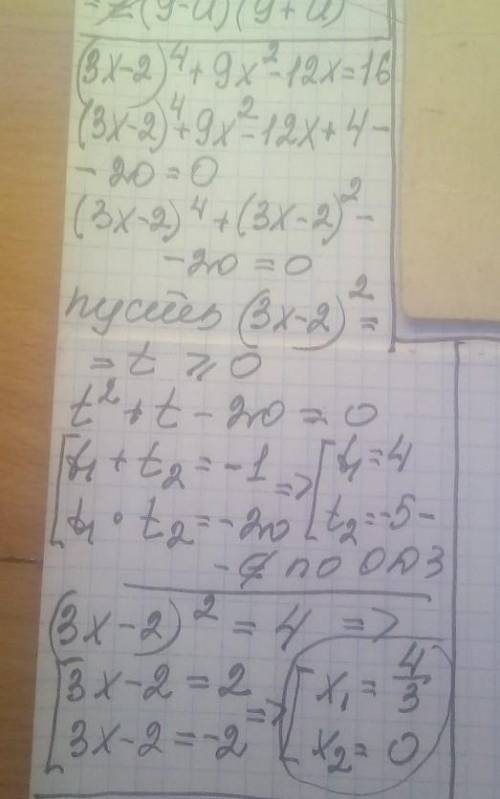 = 2(y-u)(y+u)
(3x-2)⁴+9x²-12x=16
(3x-2)⁴+9x²-12x+4-
-20=0
(3x-2)⁴+(3x-2)²-
-20=0
пусть (3x-2)²=
=t ⩾ 0
t²+t-20=0
[t₁+t₂=-1 => [t₁=4
[t₁•t₂=-20 [t₂=-5-
-∉ по ОДЗ
(3x-2)²=4 =>
[3x-2=2 => [x₁=4/3
[3x-2=-2 [x₂=0